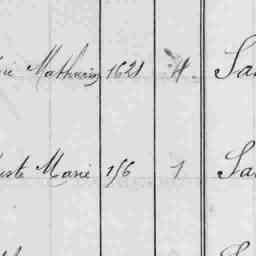 rie Mathurin 1621 4. Sa
uste Marie 156 1 Sa